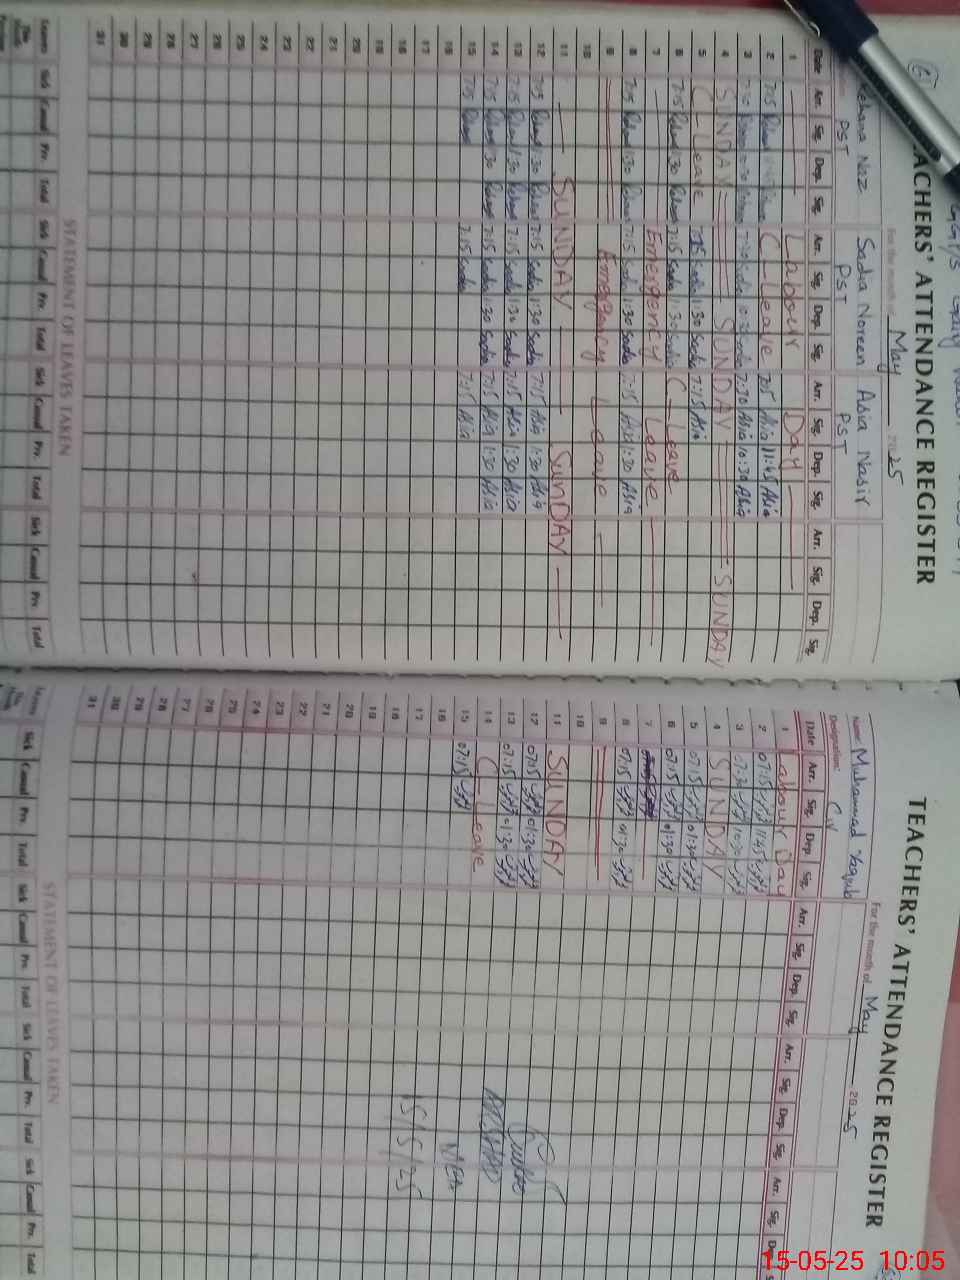 TEACHERS' ATTENDANCE REGISTER
For the month of May 2025
Rehana Naz Sadia Noreen Asia Nasir
PST PST PST
Date Arr. Sig. Dep. Sig. Arr. Sig. Dep. Sig. Arr. Sig. Dep. Sig. Arr. Sig. Dep. Sig.
1 Labour Day
2 7:15 C-Leave 7:15 Asia 11:45 Asia
3 7:30 10:30 7:30 Sadia 10:30 Sadia 7:30 Asia 10:30 Asia
4 SUNDAY SUNDAY SUNDAY
5 C-Leave 7:15 Sadia 1:30 Sadia 7:15 Asia
6 7:15 Rehana 1:30 Rehana 7:15 Sadia 1:30 Sadia C-Leave
7 Emergency Leave
8 7:15 Rehana 1:30 Rehana 7:15 Sadia 1:30 Sadia 7:15 Asia 1:30 Asia
9 Emergency Leave
10
11 SUNDAY SUNDAY
12 7:15 Rehana 1:30 Rehana 7:15 Sadia 1:30 Sadia 7:15 Asia 1:30 Asia
13 7:15 Rehana 1:30 Rehana 7:15 Sadia 1:30 Sadia 7:15 Asia 1:30 Asia
14 7:15 Rehana 1:30 Rehana 7:15 Sadia 1:30 Sadia 7:15 Asia 1:30 Asia
15 7:15 Rehana 7:15 Sadia 7:15 Asia
16
17
18
19
20
21
22
23
24
25
26
27
28
29
30
31
STATEMENT OF LEAVES TAKEN
Leaves Sick Casual Prv. Total Sick Casual Prv. Total Sick Casual Prv. Total Sick Casual Prv. Total
TEACHERS' ATTENDANCE REGISTER
For the month of May 2025
Name: Muhammad Yaqub
Designation: CV
Date Arr. Sig. Dep. Sig. Arr. Sig. Dep. Sig. Arr. Sig. Dep. Sig. Arr. Sig. Dep.
1 Labour Day
2 07:15 11:45
3 07:30 10:30
4 SUNDAY
5 07:15 01:30
6 07:15 01:30
7
8 07:15 01:30
9
10
11 SUNDAY
12 07:15 01:30
13 07:15 01:30
14 C-Leave
15 07:15
16
17
18
19
20
21
22
23
24
25
26
27
28
29
30
31
MEA
15/5/25
STATEMENT OF LEAVES TAKEN
Sick Casual Prv. Total Sick Casual Prv. Total Sick Casual Prv. Total Sick Casual Prv. Total
15-05-25 10:05